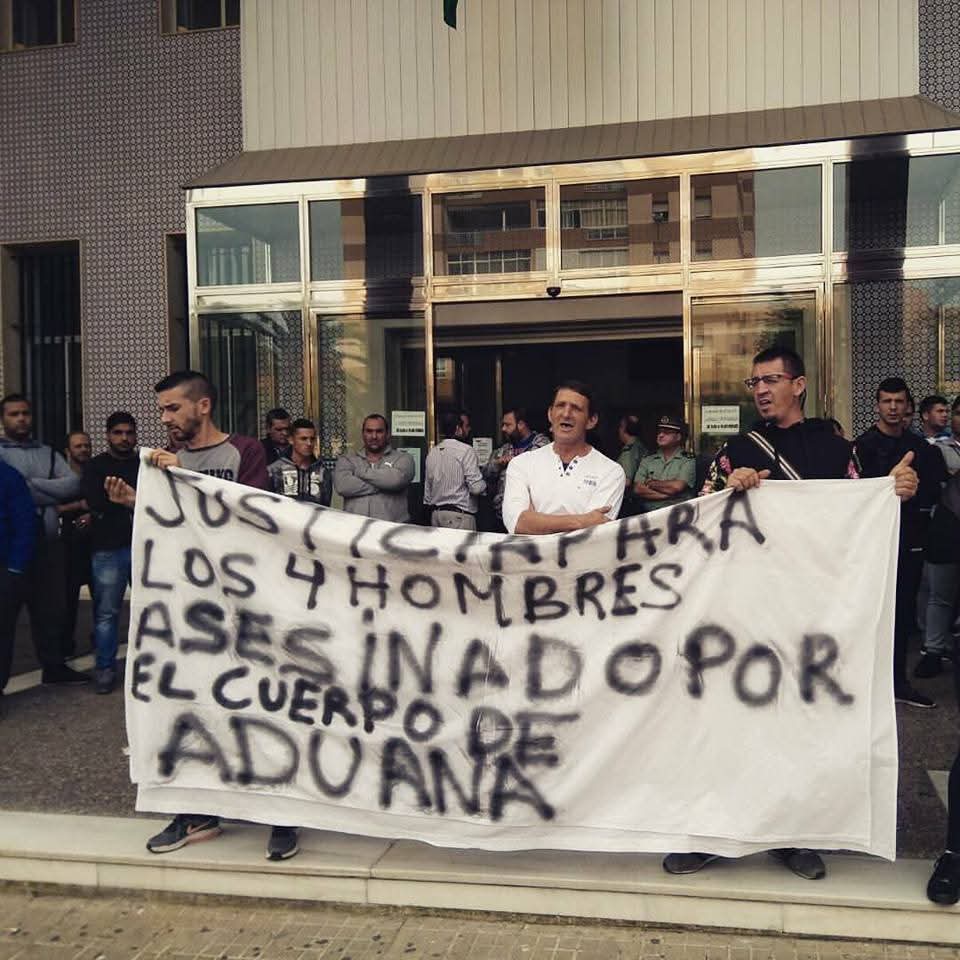 JUSTICIA PARA
LOS 4 HOMBRES
ASESINADO POR
EL CUERPO DE
ADUANA